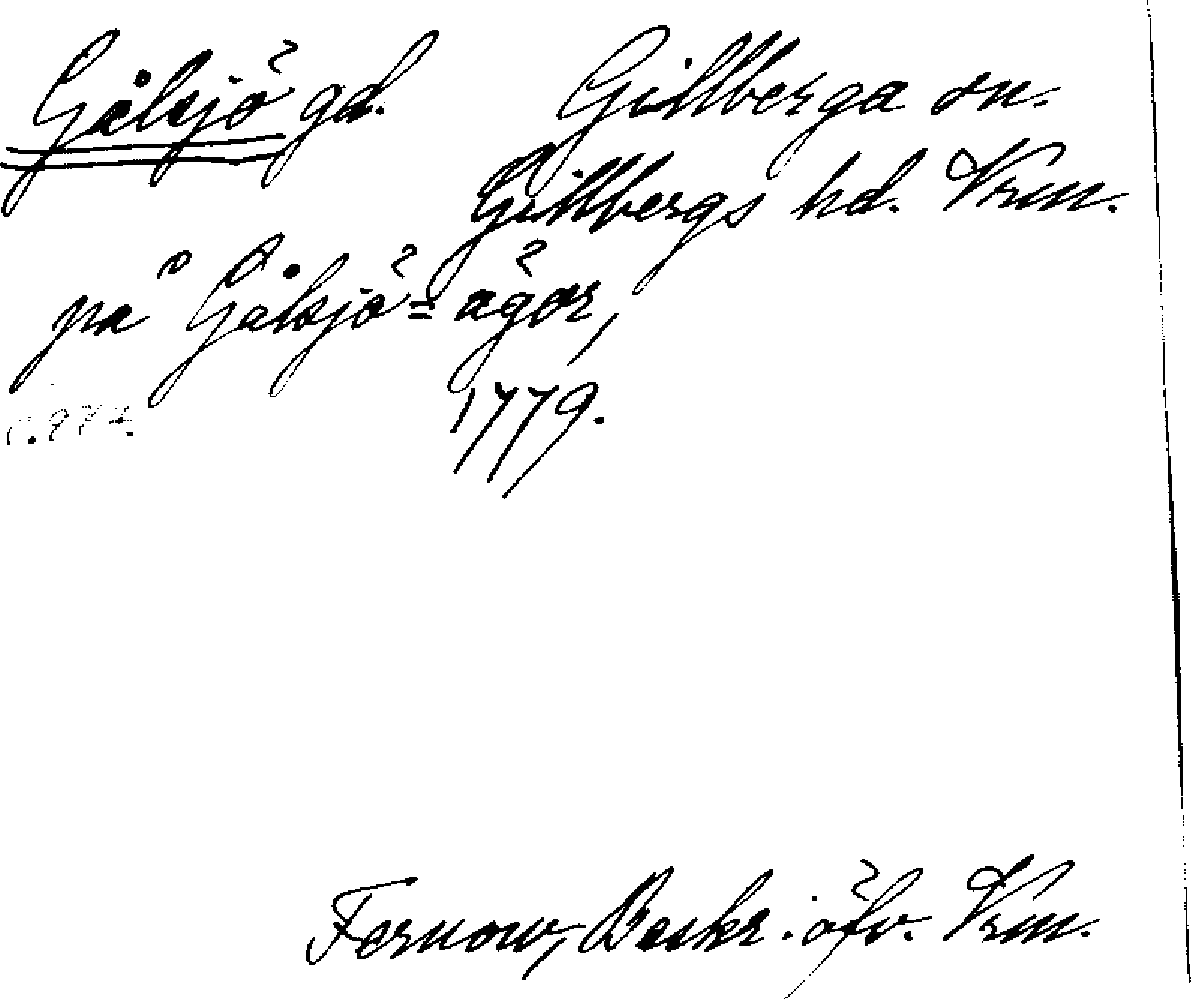 Gålsjö gd. Gillberga sn.
Gillbergs hd. Vrm.
på Gålsjö=ägor,
1779.
Fernow, Beskr. öfv. Vrm.